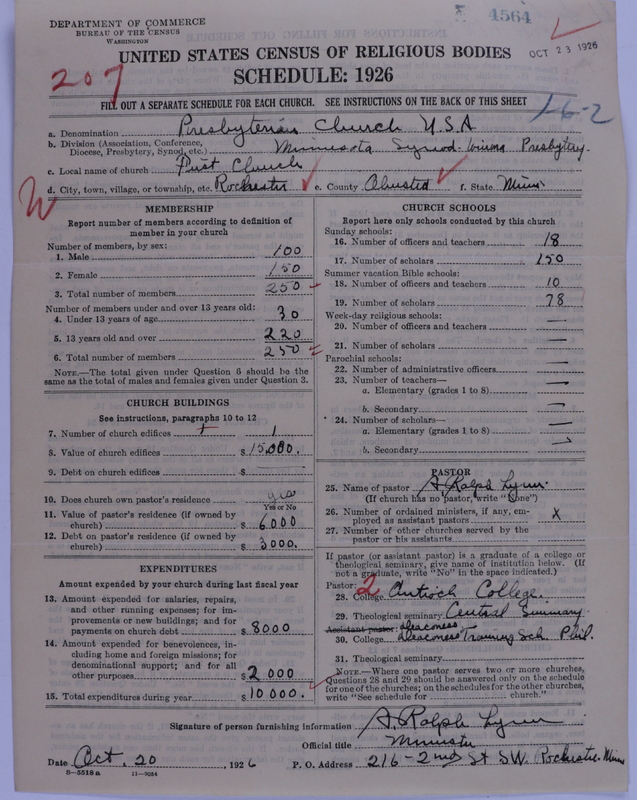 DEPARTMENT OF COMMERCE
BUREAU OF THE CENSUS
WASHINGTON
4564
OCT 23 1926
UNITED STATES CENSUS OF RELIGIOUS BODIES
SCHEDULE: 1926
207
FILL OUT A SEPARATE SCHEDULE FOR EACH CHURCH. SEE INSTRUCTIONS ON THE BACK OF THIS SHEET
1-6-2
a. Denomination Presbyterian Church USA
b. Division (Association, Conference, Diocese, Presbytery, Synod, etc.) Minnesota Synod-Winona Presbytery
c. Local name of church First Church
d. City, town, village, or township, etc. Rochester e. County Olmsted f. State Minn
MEMBERSHIP
Report number of members according to definition of
member in your church
Number of members, by sex:
1. Male 100
2. Female 150
3. Total number of members 250
Number of members under and over 13 years old:
4. Under 13 years of age 30
5. 13 years old and over 220
6. Total number of members 250
NOTE.—The total given under Question 6 should be
same as the total of males and females given under Question 3.
CHURCH BUILDINGS
See instructions, paragraphs 10 to 12
7. Number of church edifices 1
8. Value of church edifices $15,000.
9. Debt on church edifices $
10. Does church own pastor's residence yes
Yes or No
11. Value of pastor's residence (if owned by
church) $6000
12. Debt on pastor's residence (if owned by
church) $3000.
EXPENDITURES
Amount expended by your church during last fiscal year
13. Amount expended for salaries, repairs,
and other running expenses; for im-
provements or new buildings; and for
payments on church debt $8000
14. Amount expended for benevolences, in-
cluding home and foreign missions; for
denominational support; and for all
other purposes $2000
15. Total expenditures during year $10000.
CHURCH SCHOOLS
Report here only schools conducted by this church
Sunday schools:
16. Number of officers and teachers 18
17. Number of scholars 150
Summer vacation Bible schools:
18. Number of officers and teachers 10
19. Number of scholars 78
Week-day religious schools:
20. Number of officers and teachers —
21. Number of scholars —
Parochial schools:
22. Number of administrative officers —
23. Number of teachers—
a. Elementary (grades 1 to 8) —
b. Secondary —
24. Number of scholars—
a. Elementary (grades 1 to 8) —
b. Secondary —
PASTOR
25. Name of pastor A Ralph Lynn
(If church has no pastor, write "None")
26. Number of ordained ministers, if any, em-
ployed as assistant pastors X
27. Number of other churches served by the
pastor or his assistants
If pastor (or assistant pastor) is a graduate of a college or
theological seminary, give name of institution below. (If
not a graduate, write "No" in the space indicated.)
Pastor: 2
28. College Antioch College
29. Theological seminary Central Seminary
Assistant pastor: Deaconess
30. College Deaconess Training Sch Phil.
31. Theological seminary
NOTE.—Where one pastor serves two or more churches,
Questions 28 and 29 should be answered only on the schedule
for one of the churches; on the schedules for the other churches,
write "See schedule for church."
Signature of person furnishing information A. Ralph Lynn
Official title Minister
Date Oct. 20, 1926 P. O. Address 216-2nd St SW. Rochester Minn
8-5518 a 11-9034